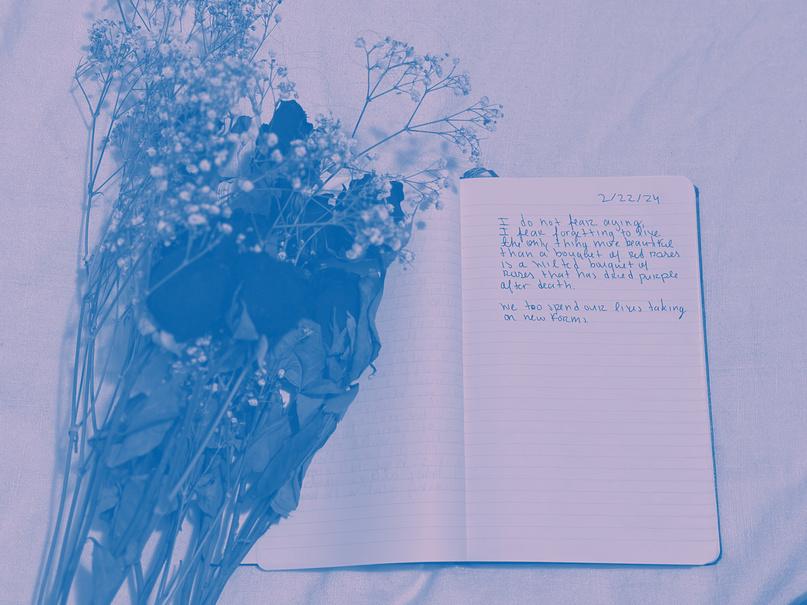 2/22/24
I do not fear aging.
I fear forgetting to live
the only thing more beautiful
than a bouquet of red roses
is a wilted bouquet of
roses that has dried purple
after death.
we too spend our lives taking
on new forms.